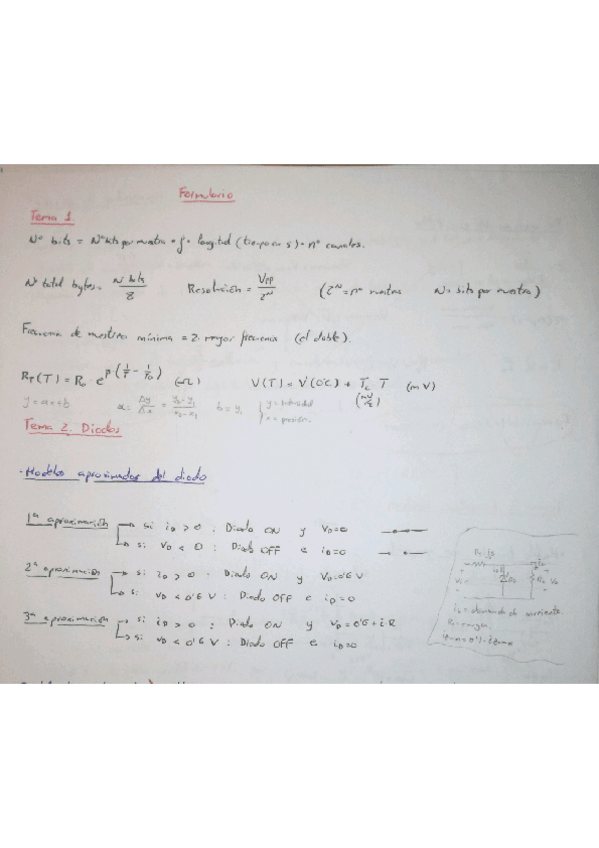 Formulario
Tema 1
Nº bits = Nº bits por muestra * f * longitud (tiempo en s) * nº canales.
Nº total bytes = N bits / 8    Resolución = Vpp / 2^N    (2^N = nº muestras    N = bits por muestra)
Frecuencia de muestreo mínima = 2 · mayor frecuencia (el doble).
R_T(T) = R_0 · e^{β(1/T - 1/T_0)} (Ω)    V(T) = V(0ºC) + T_c T (mV)
(mV/ºC)
y = ax+b    a = Δy/Δx = (y_2-y_1)/(x_2-x_1)    b = y_1    { y =    x = presión.
Tema 2. Diodos
- Modelos aproximados del diodo
1ª aproximación → si i_D > 0 : Diodo ON y V_D = 0
→ si V_D < 0 : Diodo OFF e i_D = 0
2ª aproximación → si i_D > 0 : Diodo ON y V_D = 0'6 V
→ si V_D < 0'6 V : Diodo OFF e i_D = 0
3ª aproximación → si i_D > 0 : Diodo ON y V_D = 0'6 + i·R
→ si V_D < 0'6 V : Diodo OFF e i_D = 0
i_L = demanda de corriente.